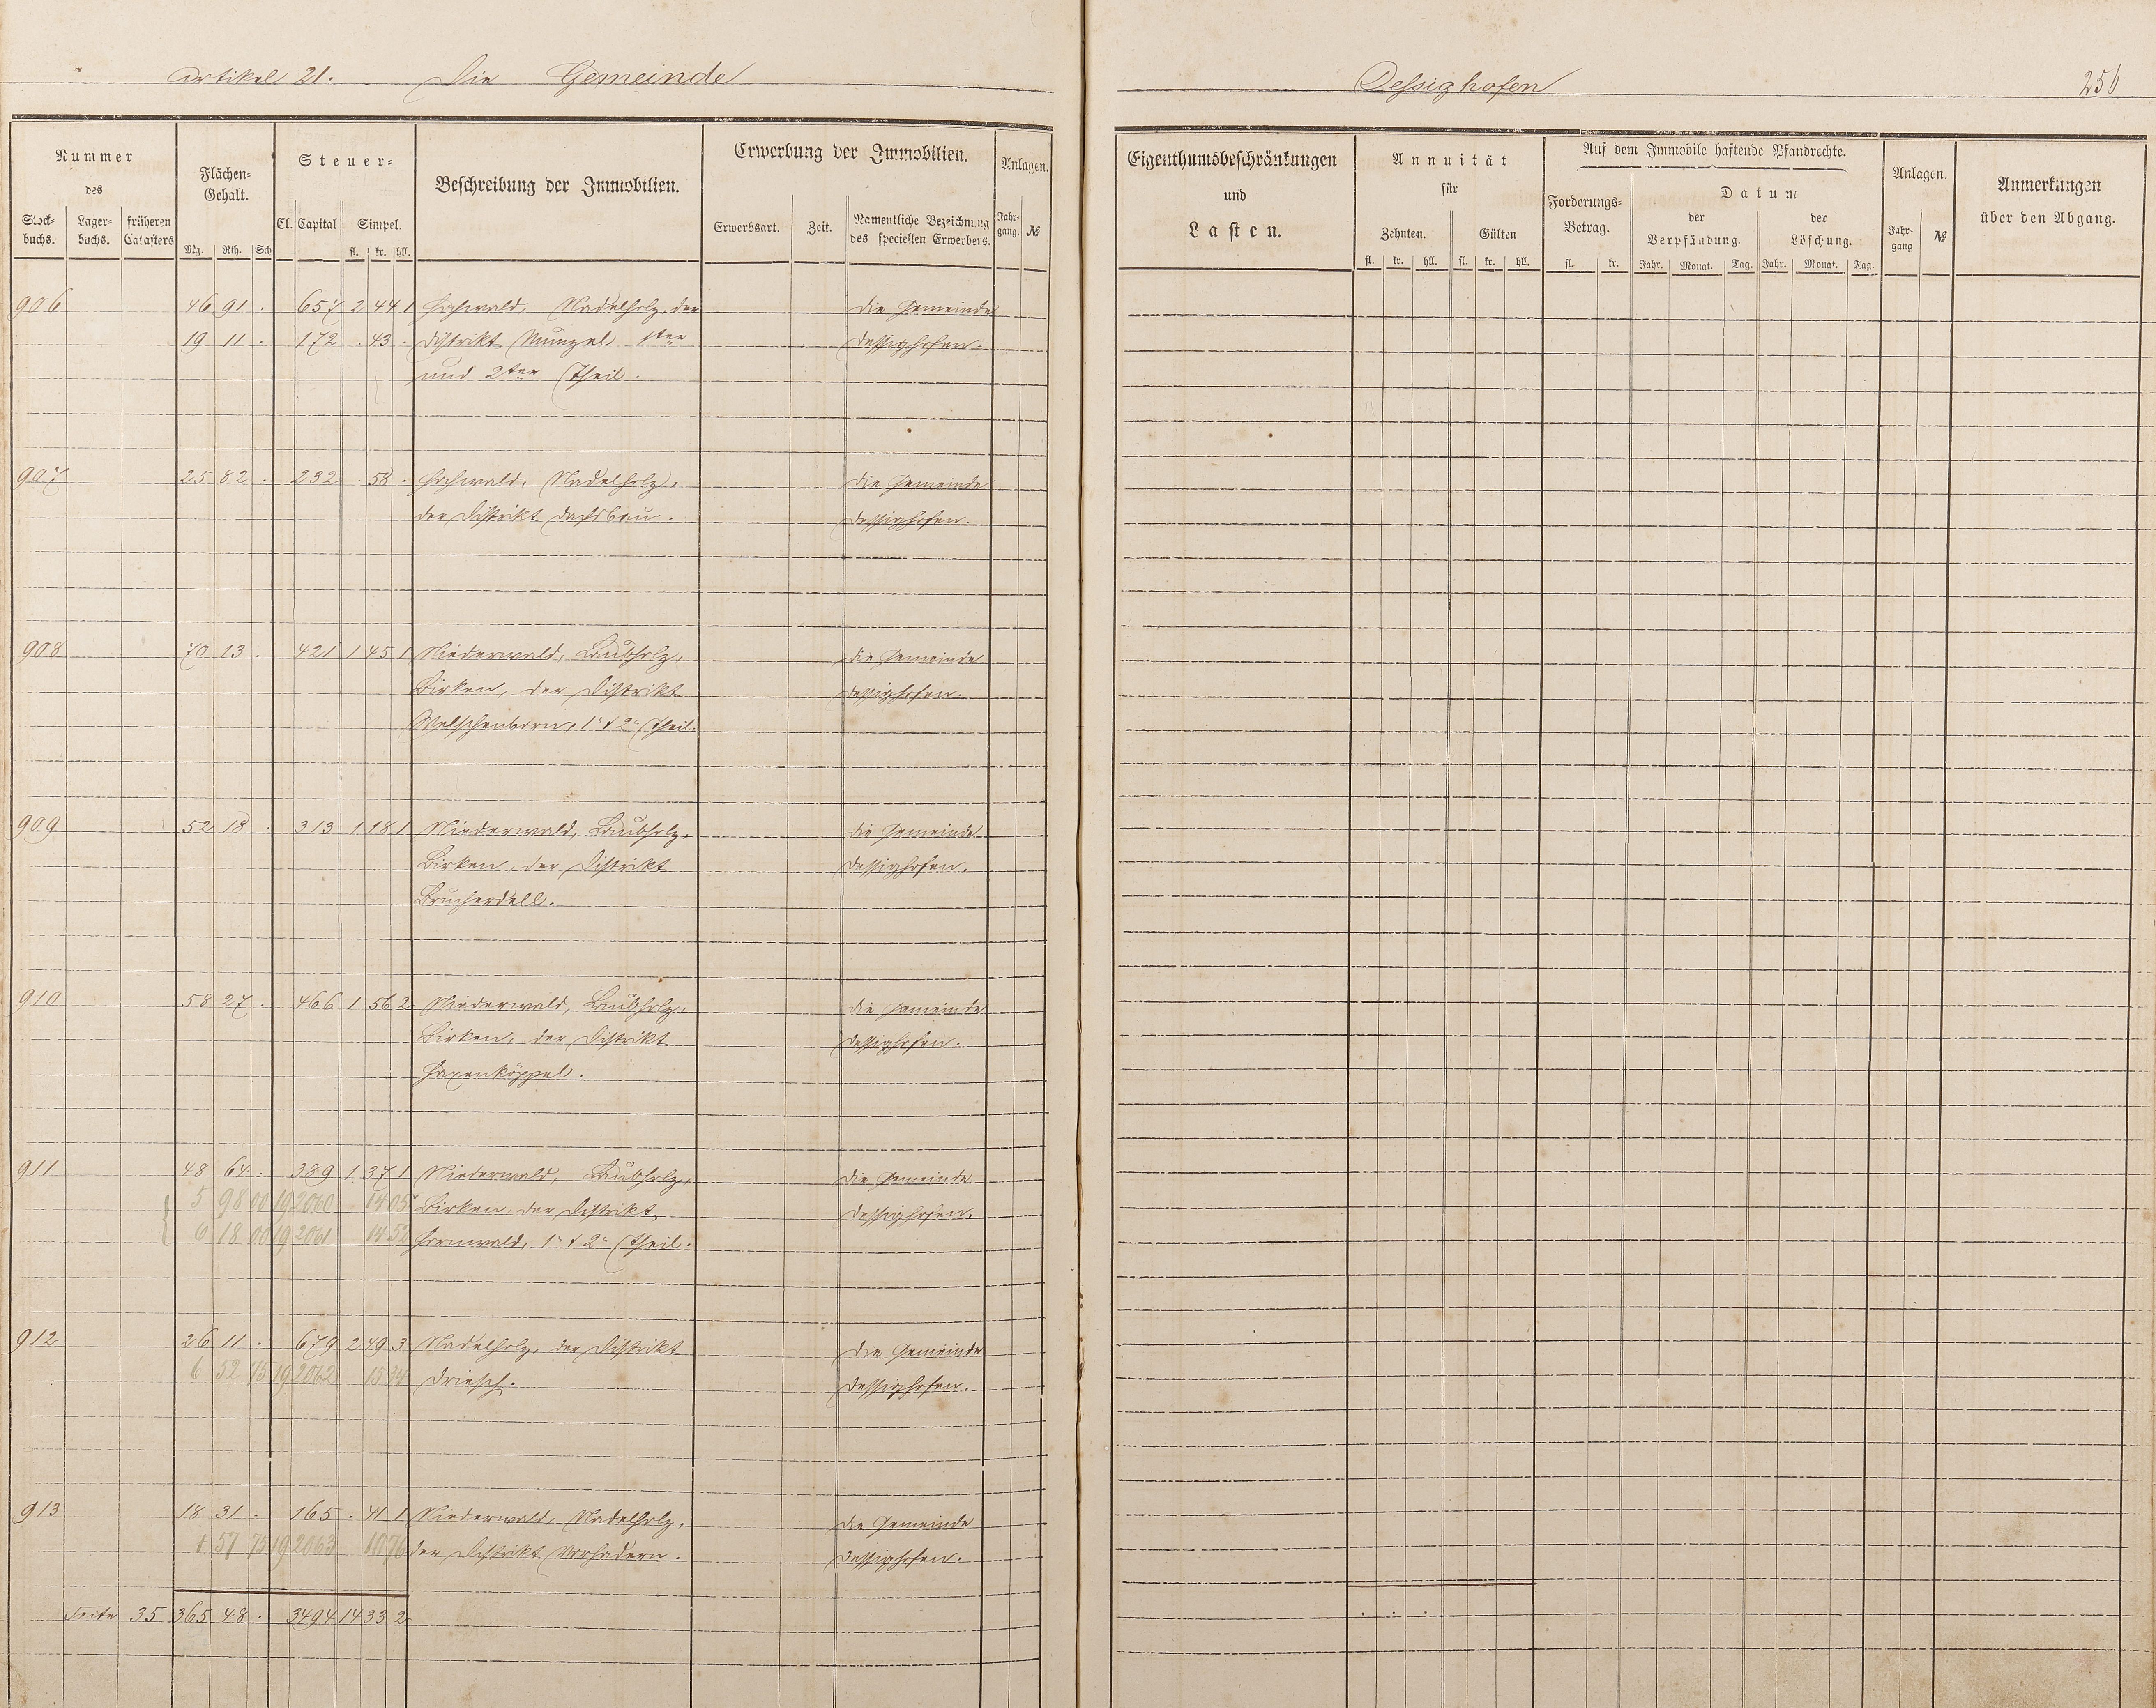 Artikel 21. Die Gemeinde
Dessighofen 256
Nummer des
Stock-buchs. Lager-buchs. früheren Catasters
Flächen-Gehalt.
Mg. Rth. Sch
Steuer-
Cl. Capital Simpel.
fl. kr. hll.
Beschreibung der Immobilien.
Erwerbung der Immobilien.
Erwerbsart. Zeit. Namentliche Bezeichnung des speciellen Erwerbers.
Anlagen.
Jahr-gang. №
Eigenthumsbeschränkungen
und
Lasten.
Annuität
für
Zehnten. Gülten
fl. kr. hll. fl. kr. hll.
Auf dem Immobile haftende Pfandrechte.
Forderungs-Betrag.
fl. kr.
Datum
der Verpfändung. der Löschung.
Jahr. Monat. Tag. Jahr. Monat. Tag.
Anlagen.
Jahr-gang №
Anmerkungen
über den Abgang.
906 46 91 . 657 2 44 1 Hochwald, Nadelholz, der Die Gemeinde
19 11 . 172 . 43 . Distrikt Münzel 1ter Dessighofen.
und 2ter Theil.
907 25 82 . 232 . 58 . Hochwald, Nadelholz, Die Gemeinde
der Distrikt Dachsbau. Dessighofen.
908 70 13 . 421 1 45 1 Niederwald, Laubholz, Die Gemeinde
Birken, der Distrikt Dessighofen.
Welschenborn, 1r & 2r Theil.
909 52 18 . 313 1 18 1 Niederwald, Laubholz, Die Gemeinde
Birken, der Distrikt Dessighofen.
Brucherdell.
910 58 27 . 466 1 56 2 Niederwald, Laubholz, Die Gemeinde
Birken, der Distrikt Dessighofen.
Haxenköppel.
911 48 64 . 389 1 37 1 Niederwald, Laubholz, Die Gemeinde
5 98 00 19 2060 14 05 Birken, der Distrikt Dessighofen.
6 18 00 19 2061 14 52 Hornwald, 1r & 2r Theil.
912 26 11 . 679 2 49 3 Nadelholz, der Distrikt Die Gemeinde
6 52 75 19 2062 15 34 Driesch. Dessighofen.
913 18 31 . 165 . 41 1 Niederwald, Nadelholz, Die Gemeinde
57 75 19 2063 10 76 der Distrikt Vorhadern. Dessighofen.
Seite 35 365 48 . 3494 14 33 2